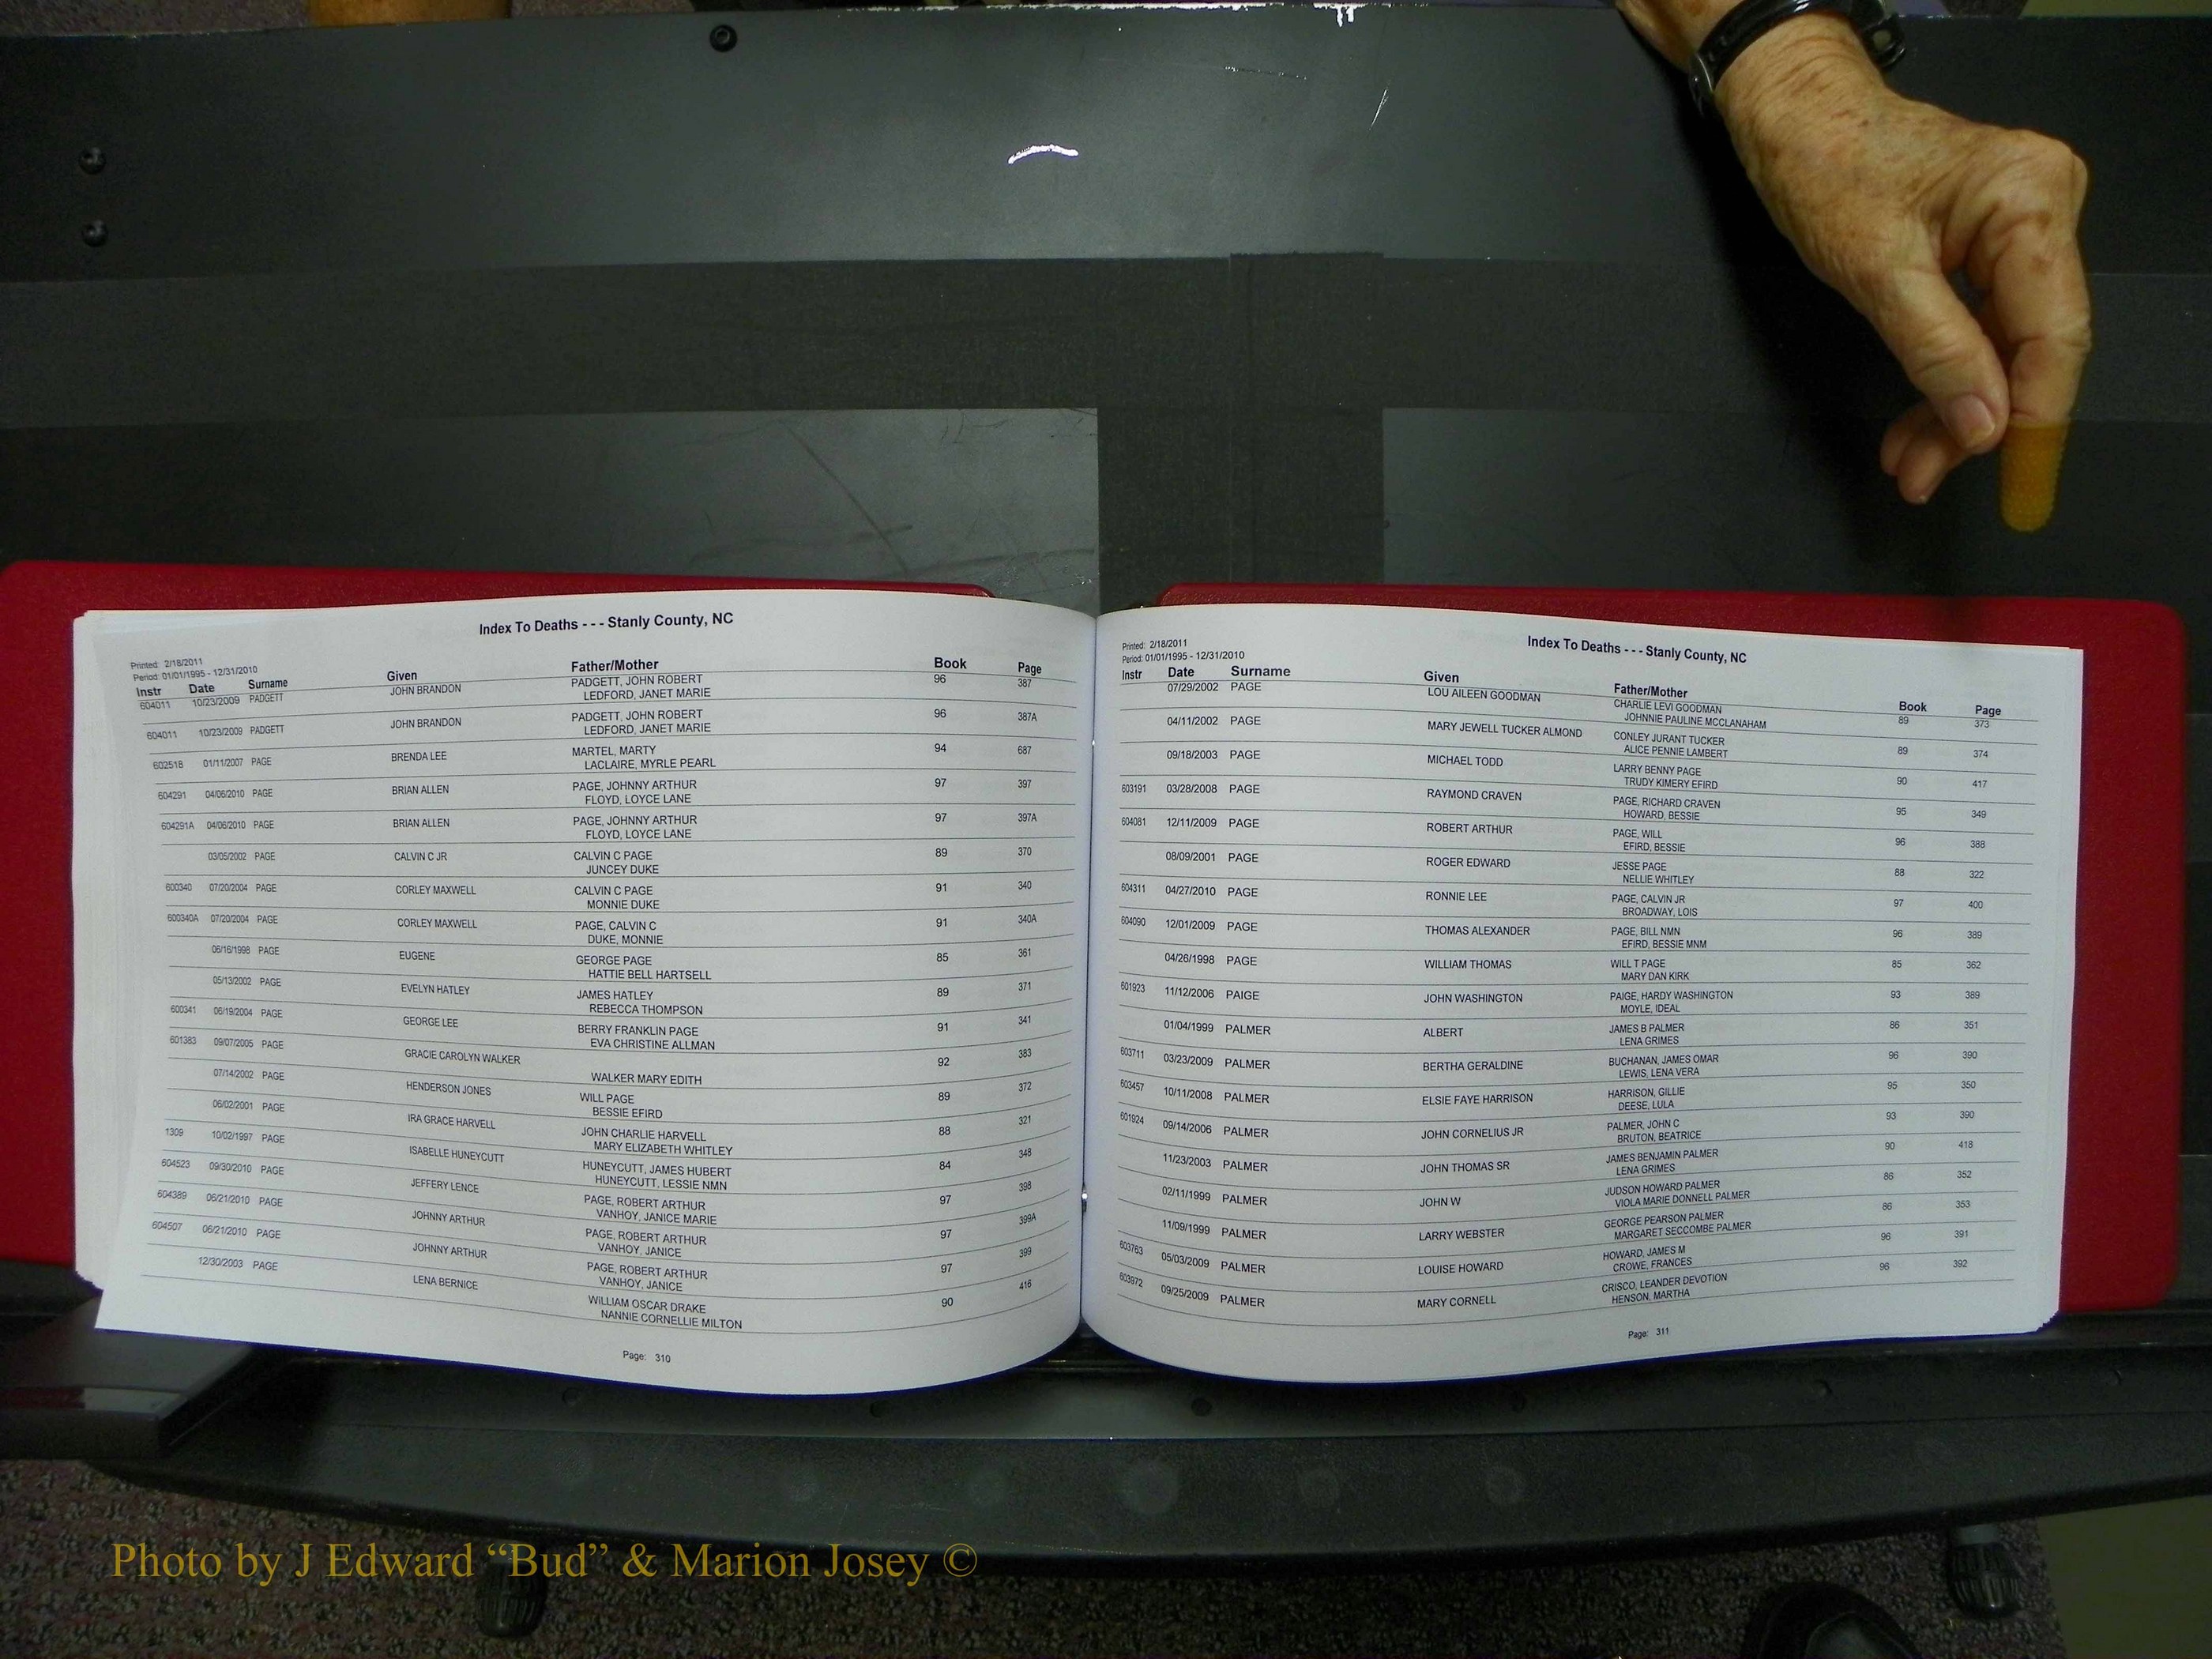 Index To Deaths - - - Stanly County, NC
Printed: 2/18/2011
Period: 01/01/1995 - 12/31/2010
Instr Date Surname Given Father/Mother Book Page
604011 10/23/2009 PADGETT JOHN BRANDON PADGETT, JOHN ROBERT 96 387
LEDFORD, JANET MARIE
604011 10/23/2009 PADGETT JOHN BRANDON PADGETT, JOHN ROBERT 96 387A
LEDFORD, JANET MARIE
602518 01/11/2007 PAGE BRENDA LEE MARTEL, MARTY 94 687
LACLAIRE, MYRLE PEARL
604291 04/06/2010 PAGE BRIAN ALLEN PAGE, JOHNNY ARTHUR 97 397
FLOYD, LOYCE LANE
604291A 04/06/2010 PAGE BRIAN ALLEN PAGE, JOHNNY ARTHUR 97 397A
FLOYD, LOYCE LANE
03/05/2002 PAGE CALVIN C JR CALVIN C PAGE 89 370
JUNCEY DUKE
600340 07/20/2004 PAGE CORLEY MAXWELL CALVIN C PAGE 91 340
MONNIE DUKE
600340A 07/20/2004 PAGE CORLEY MAXWELL PAGE, CALVIN C 91 340A
DUKE, MONNIE
06/16/1998 PAGE EUGENE GEORGE PAGE 85 361
HATTIE BELL HARTSELL
05/13/2002 PAGE EVELYN HATLEY JAMES HATLEY 89 371
REBECCA THOMPSON
600341 06/19/2004 PAGE GEORGE LEE BERRY FRANKLIN PAGE 91 341
EVA CHRISTINE ALLMAN
601383 09/07/2005 PAGE GRACIE CAROLYN WALKER 92 383
WALKER MARY EDITH
07/14/2002 PAGE HENDERSON JONES WILL PAGE 89 372
BESSIE EFIRD
06/02/2001 PAGE IRA GRACE HARVELL JOHN CHARLIE HARVELL 88 321
MARY ELIZABETH WHITLEY
1309 10/02/1997 PAGE ISABELLE HUNEYCUTT HUNEYCUTT, JAMES HUBERT 84 348
HUNEYCUTT, LESSIE NMN
604523 09/30/2010 PAGE JEFFERY LENCE PAGE, ROBERT ARTHUR 97 398
VANHOY, JANICE MARIE
604389 06/21/2010 PAGE JOHNNY ARTHUR PAGE, ROBERT ARTHUR 97 399A
VANHOY, JANICE
604507 06/21/2010 PAGE JOHNNY ARTHUR PAGE, ROBERT ARTHUR 97 399
VANHOY, JANICE
12/30/2003 PAGE LENA BERNICE WILLIAM OSCAR DRAKE 90 416
NANNIE CORNELLIE MILTON
Page: 310
Index To Deaths - - - Stanly County, NC
Printed: 2/18/2011
Period: 01/01/1995 - 12/31/2010
Instr Date Surname Given Father/Mother Book Page
07/29/2002 PAGE LOU AILEEN GOODMAN CHARLIE LEVI GOODMAN 89 373
JOHNNIE PAULINE MCCLANAHAM
04/11/2002 PAGE MARY JEWELL TUCKER ALMOND CONLEY JURANT TUCKER 89 374
ALICE PENNIE LAMBERT
09/18/2003 PAGE MICHAEL TODD LARRY BENNY PAGE 90 417
TRUDY KIMERY EFIRD
603191 03/28/2008 PAGE RAYMOND CRAVEN PAGE, RICHARD CRAVEN 95 349
HOWARD, BESSIE
604081 12/11/2009 PAGE ROBERT ARTHUR PAGE, WILL 96 388
EFIRD, BESSIE
08/09/2001 PAGE ROGER EDWARD JESSE PAGE 88 322
NELLIE WHITLEY
604311 04/27/2010 PAGE RONNIE LEE PAGE, CALVIN JR 97 400
BROADWAY, LOIS
604090 12/01/2009 PAGE THOMAS ALEXANDER PAGE, BILL NMN 96 389
EFIRD, BESSIE MNM
04/26/1998 PAGE WILLIAM THOMAS WILL T PAGE 85 362
MARY DAN KIRK
601923 11/12/2006 PAIGE JOHN WASHINGTON PAIGE, HARDY WASHINGTON 93 389
MOYLE, IDEAL
01/04/1999 PALMER ALBERT JAMES B PALMER 86 351
LENA GRIMES
603711 03/23/2009 PALMER BERTHA GERALDINE BUCHANAN, JAMES OMAR 96 390
LEWIS, LENA VERA
603457 10/11/2008 PALMER ELSIE FAYE HARRISON HARRISON, GILLIE 95 350
DEESE, LULA
601924 09/14/2006 PALMER JOHN CORNELIUS JR PALMER, JOHN C 93 390
BRUTON, BEATRICE
11/23/2003 PALMER JOHN THOMAS SR JAMES BENJAMIN PALMER 90 418
LENA GRIMES
02/11/1999 PALMER JOHN W JUDSON HOWARD PALMER 86 352
VIOLA MARIE DONNELL PALMER
11/09/1999 PALMER LARRY WEBSTER GEORGE PEARSON PALMER 86 353
MARGARET SECCOMBE PALMER
603763 05/03/2009 PALMER LOUISE HOWARD HOWARD, JAMES M 96 391
CROWE, FRANCES
603972 09/25/2009 PALMER MARY CORNELL CRISCO, LEANDER DEVOTION 96 392
HENSON, MARTHA
Page: 311
Photo by J Edward “Bud” & Marion Josey ©